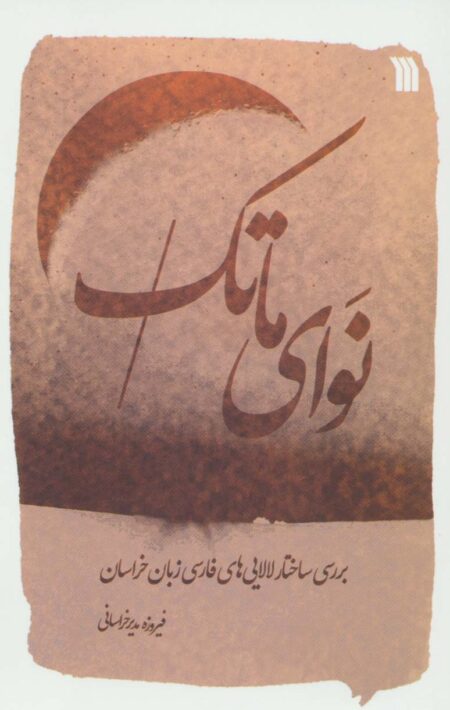 نَوای ماتک
بررسی ساختار لالایی های فارسی زبان خراسان
فیروزه مدیر خراسانی